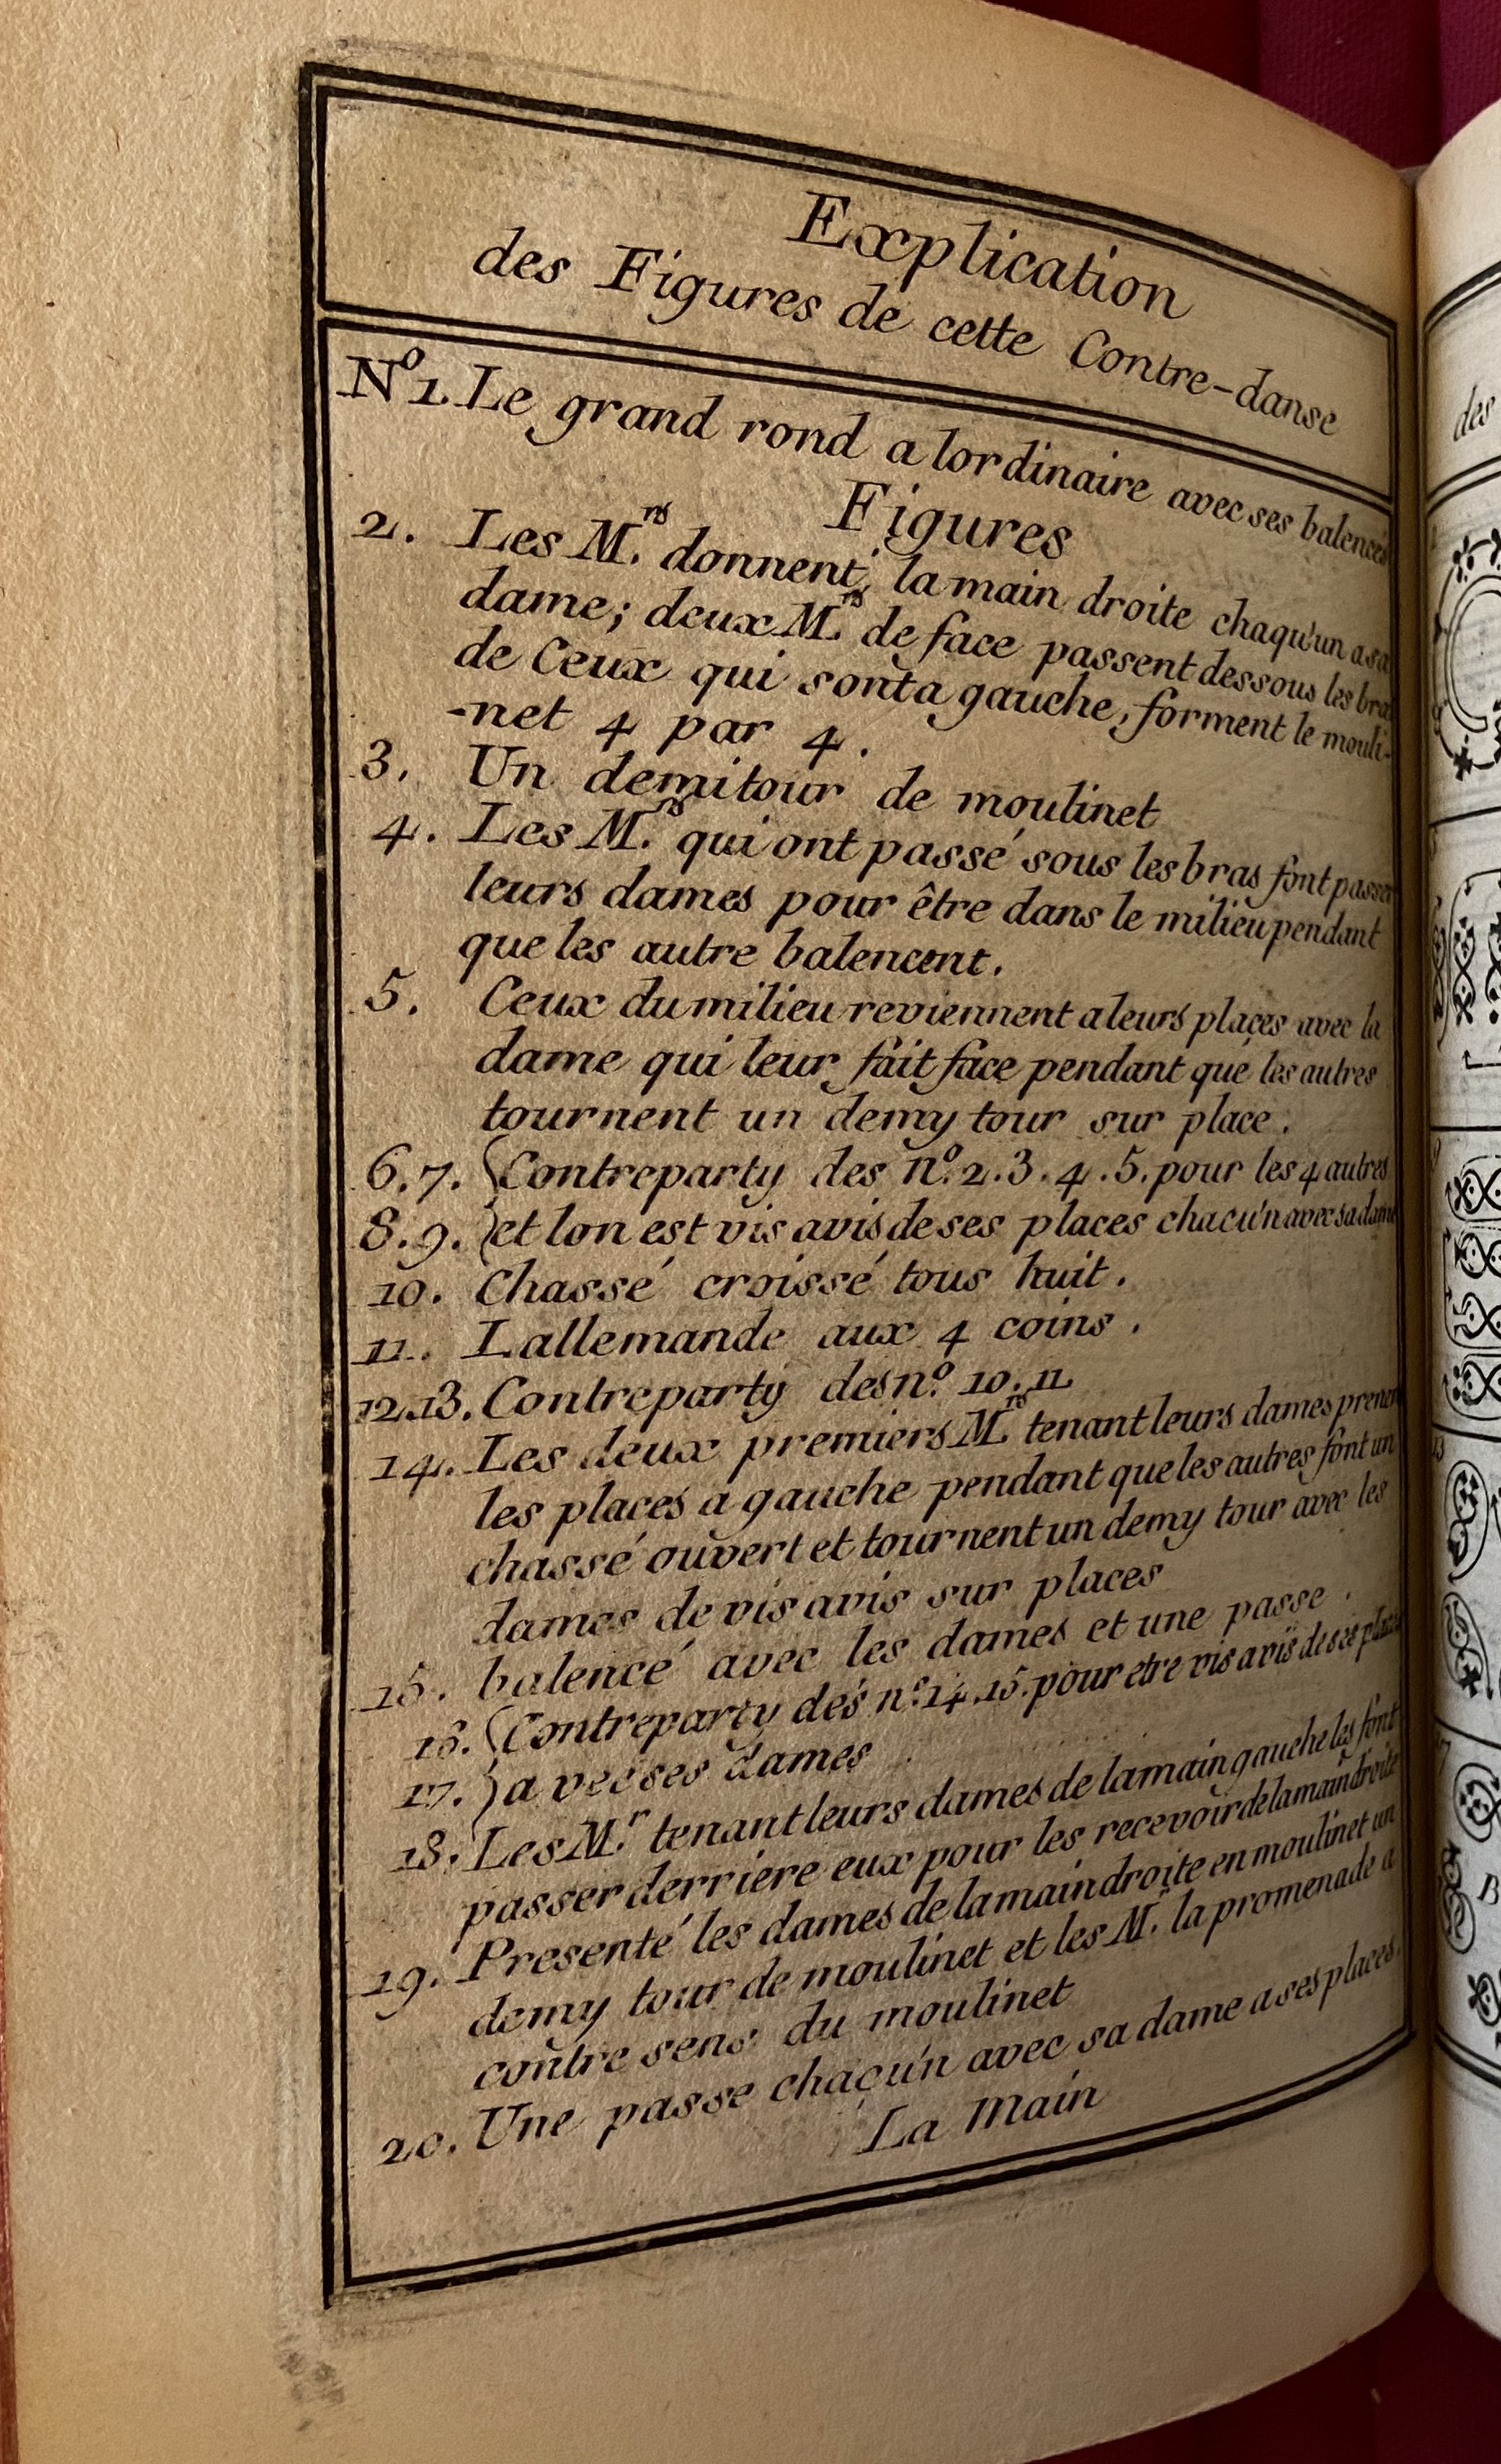 Explication
des Figures de cette Contre-danse
Nº 1. Le grand rond a lordinaire avec ses balencés
Figures
2. Les M.rs donnent la main droite chaqu'un a sa
dame; deux M.rs de face passent dessous les bras
de Ceux qui sont a gauche, forment le mouli-
-net 4 par 4.
3. Un demi tour de moulinet
4. Les M.rs qui ont passé sous les bras font passer
leurs dames pour être dans le milieu pendant
que les autre balencent.
5. Ceux du milieu reviennent a leurs places avec la
dame qui leur fait face pendant que les autres
tournent un demy tour sur place.
6.7. Contreparty des nº. 2.3.4.5. pour les 4 autres
8.9. et lon est vis avis de ses places chacu'n avec sa dame
10. Chassé croissé tous huit.
11. Lallemande aux 4 coins.
12.13. Contreparty des nº. 10.11
14. Les deux premiers M.rs tenant leurs dames prenent
les places a gauche pendant que les autres font un
chassé ouvert et tournent un demy tour avec les
dames de vis avis sur places
15. balencé avec les dames et une passe.
16. Contreparty des nº. 14.15. pour etre vis a vis de ses places
17. avec ses dames
18. Les M.r tenant leurs dames de la main gauche les font
passer derriere eux pour les recevoir de la main droite
19. Presenté les dames de la main droite en moulinet un
demy tour de moulinet et les M.rs la promenade a
contre sens du moulinet
20. Une passe chacu'n avec sa dame a ses places.
La Main
des